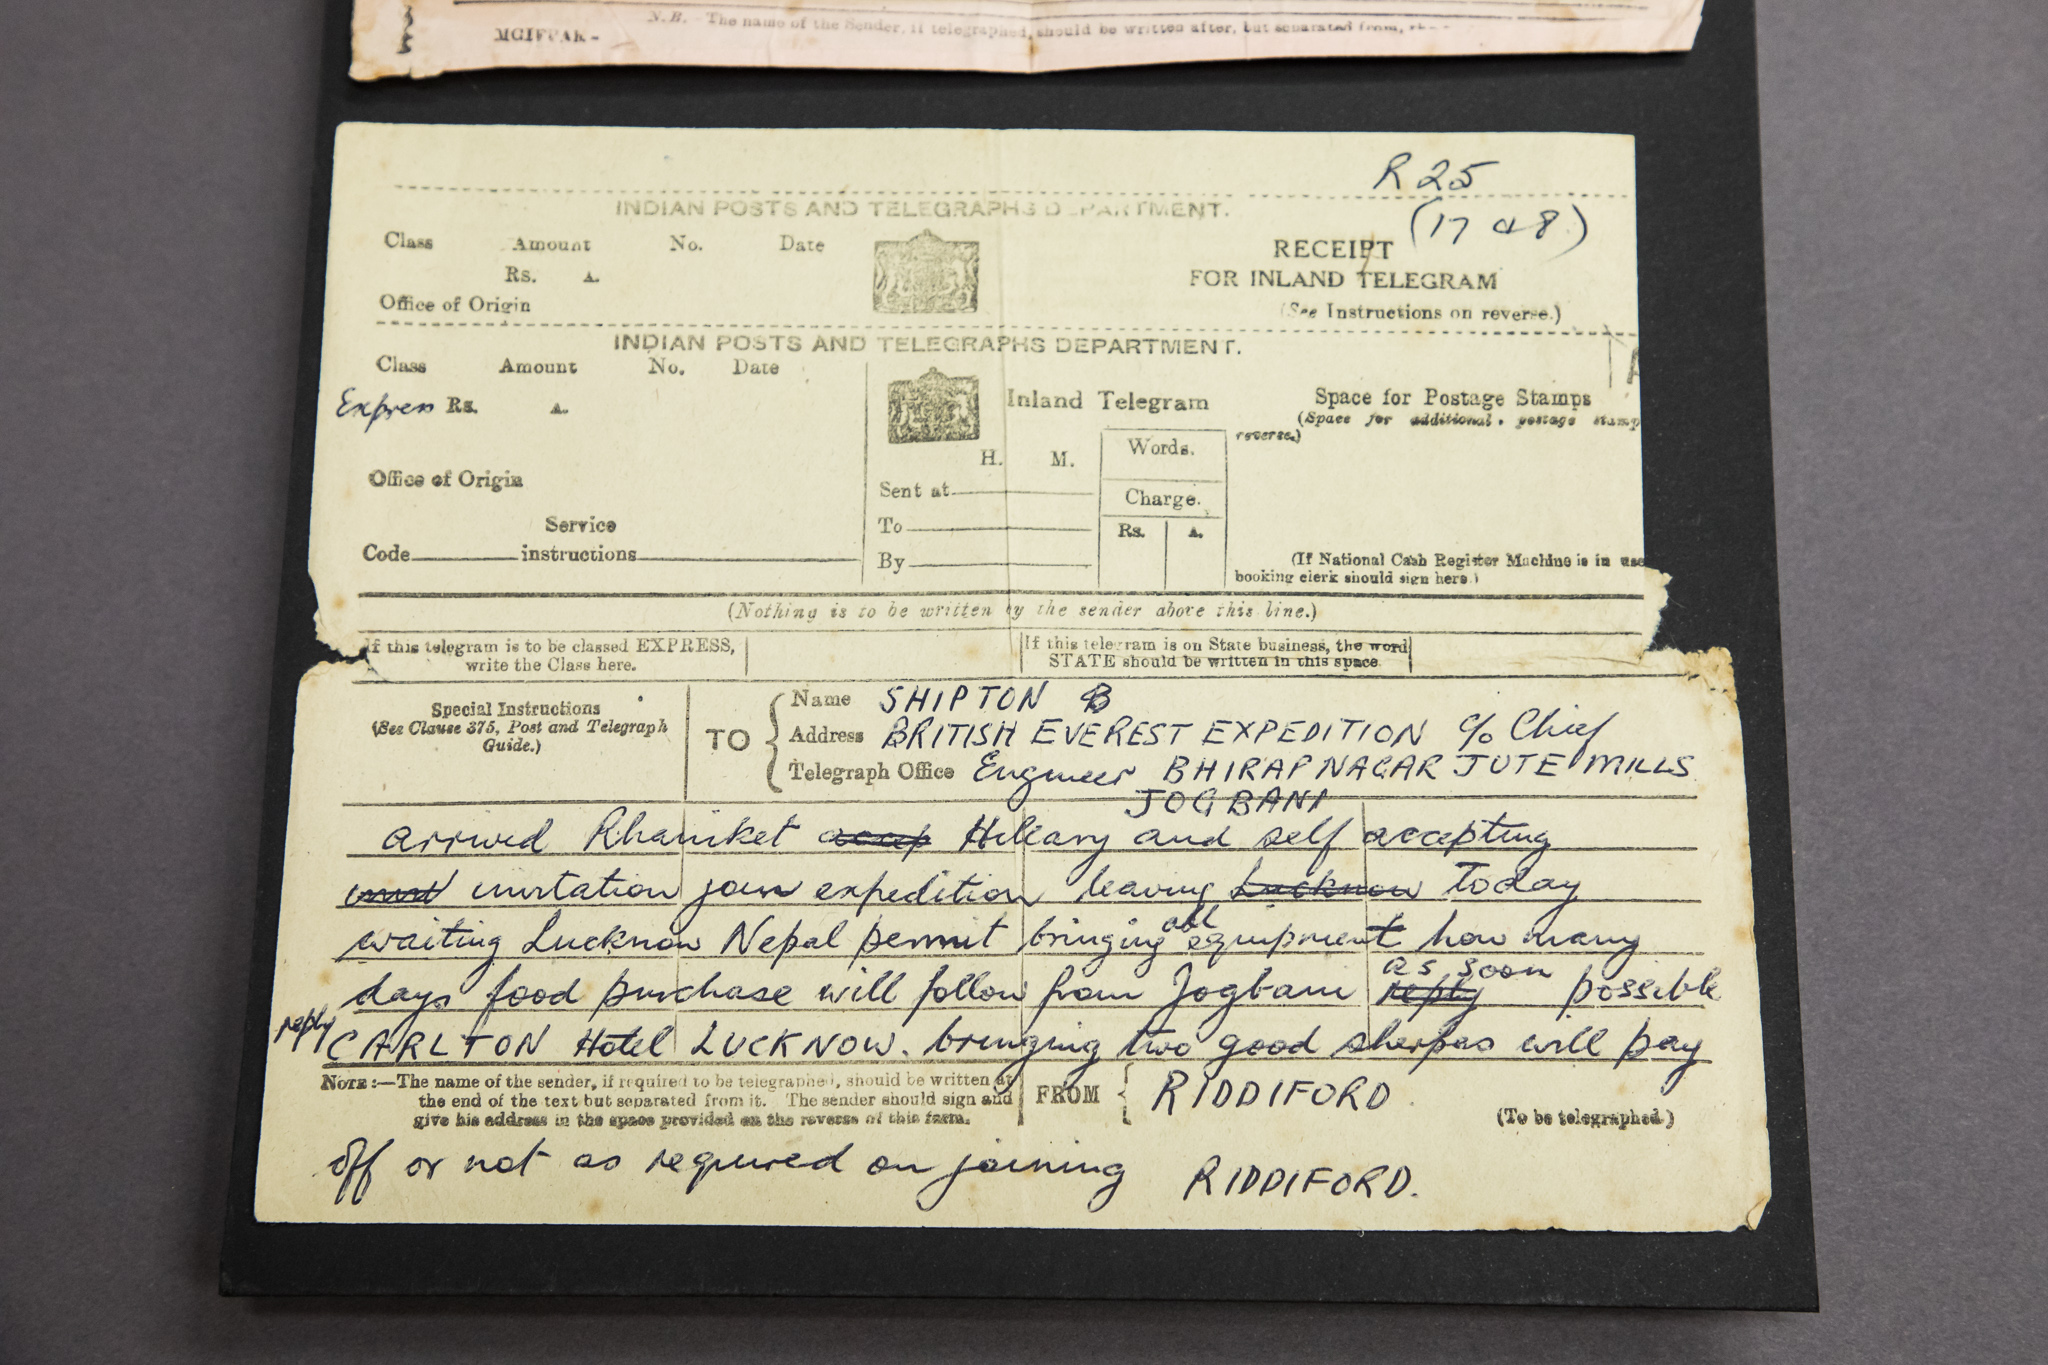 N.B. - The name of the Sender, if telegraphed, should be written after, but separated from,
MGIFPAH-
R 25
(17 a 8)
INDIAN POSTS AND TELEGRAPHS DEPARTMENT.
Class Amount No. Date
RECEIPT
Rs. A.
FOR INLAND TELEGRAM
Office of Origin
(See Instructions on reverse.)
INDIAN POSTS AND TELEGRAPHS DEPARTMENT.
Class Amount No. Date
A
Express Rs. A.
Inland Telegram
Space for Postage Stamps
(Space for additional postage stamp
reverse.)
H. M.
Words.
Office of Origin
Sent at
Charge.
Service
To
Rs. A.
Code instructions
By
(If National Cash Register Machine is in use
booking clerk should sign here.)
(Nothing is to be written by the sender above this line.)
If this telegram is to be classed EXPRESS,
write the Class here.
If this telegram is on State business, the word
STATE should be written in this space
Special Instructions
(See Clause 375, Post and Telegraph
Guide.)
TO
Name SHIPTON B
Address BRITISH EVEREST EXPEDITION c/o Chief
Telegraph Office Engineer BHIRAPNAGAR JUTE MILLS
JOGBANI
arrived Rhaniket accep Hillary and self accepting
invitation join expedition leaving Lucknow Today
waiting Lucknow Nepal permit bringing all equipment how many
days food purchase will follow from Jogbani reply as soon possible
reply CARLTON Hotel LUCKNOW. bringing two good sherpas will pay
NOTE:—The name of the sender, if required to be telegraphed, should be written at
the end of the text but separated from it. The sender should sign and
give his address in the space provided on the reverse of this form.
FROM RIDDIFORD
(To be telegraphed.)
off or not as required on joining RIDDIFORD.